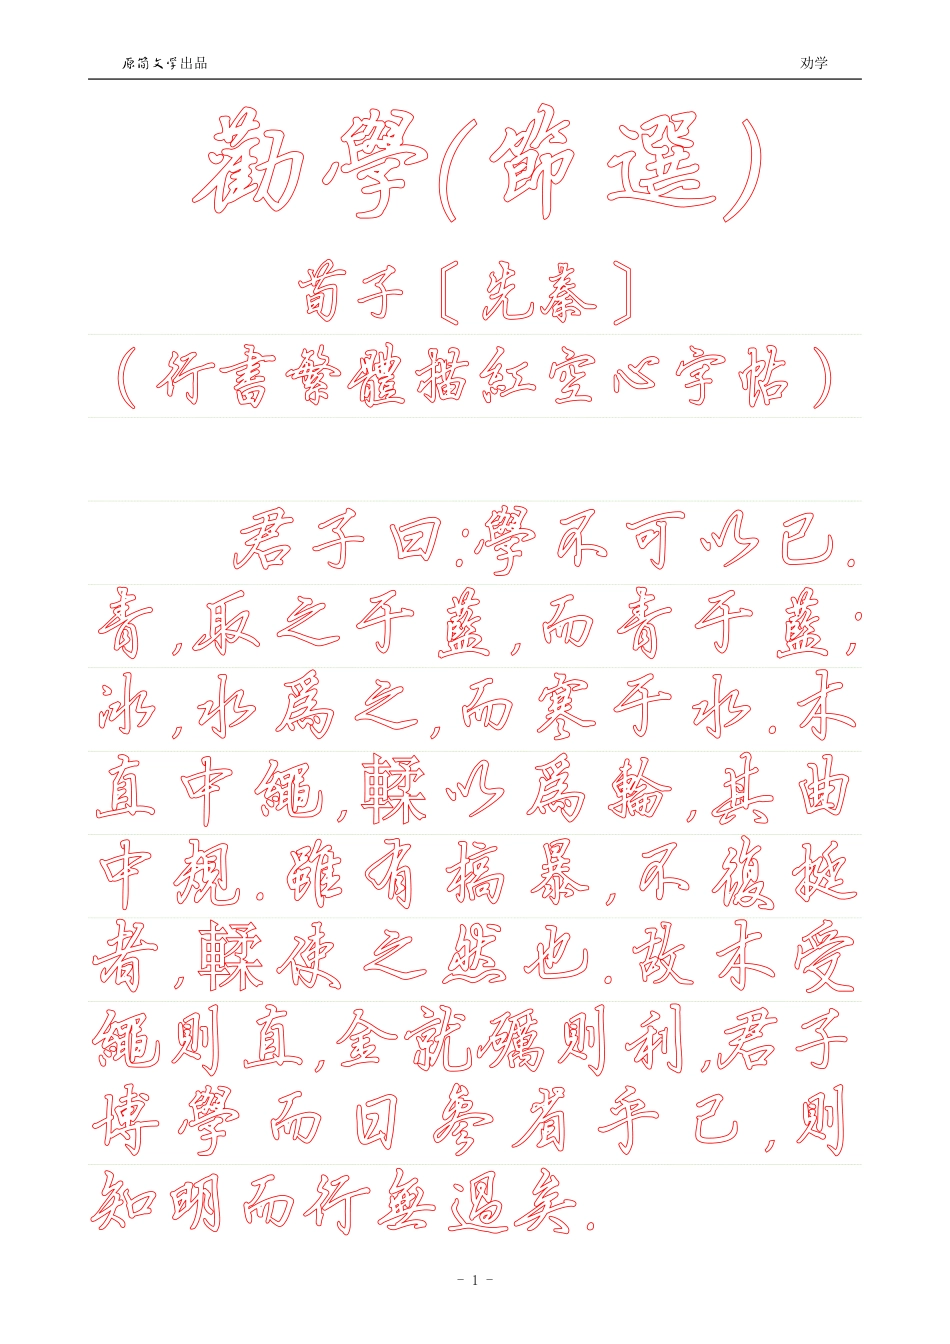 原简文学出品 劝学
勸學(節選)
荀子〔先秦〕
(行書繁體描紅空心字帖)
君子曰:學不可以已.
青,取之于藍,而青于藍;
冰,水爲之,而寒于水.木
直中繩,輮以爲輪,其曲
中規.雖有搞暴,不復挺
者,輮使之然也.故木受
繩則直,金就礪則利,君子
博學而日參省乎己,則
知明而行無過矣.
- 1 -